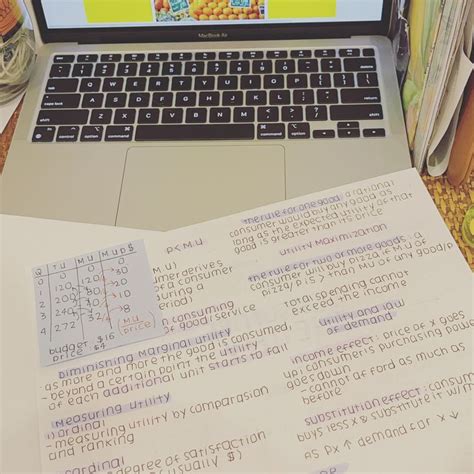 MacBook Air
Q T.U M.U MUP$
0 0 0 0
1 120 120 30
2 200 80 20
3 240 40 10
4 272 32 8
(M.U
price)
budget $16
price $4
P<M.U
M.U)
mer derives
of a consumer
during a
period)
consuming
of good/service
Diminishing Marginal Utility
- as more and more the good is consumed,
beyond a certain point the utility
of each additional unit starts to fall
Measuring Utility
1) ordinal
- measuring utility by comparasion
and ranking
cardinal
degree of satisfaction
(usually $)
the rule for one good: a rational
consumer would buy any good as
long as the expected utility of that
good is greater than its price
Utility Maximization
the rule for two or more goods: a
consumer will buy pizza if M.U of
pizza/P is > than MU of any good/p
total spending cannot
exceed the income
utility and law
of demand
income effect: price of x goes
up: consumer's purchasing power
goes down
- cannot afford as much as
before
substitution effect: consumer
buys less x & substitute it w/
as Px ↑ demand for x ↓